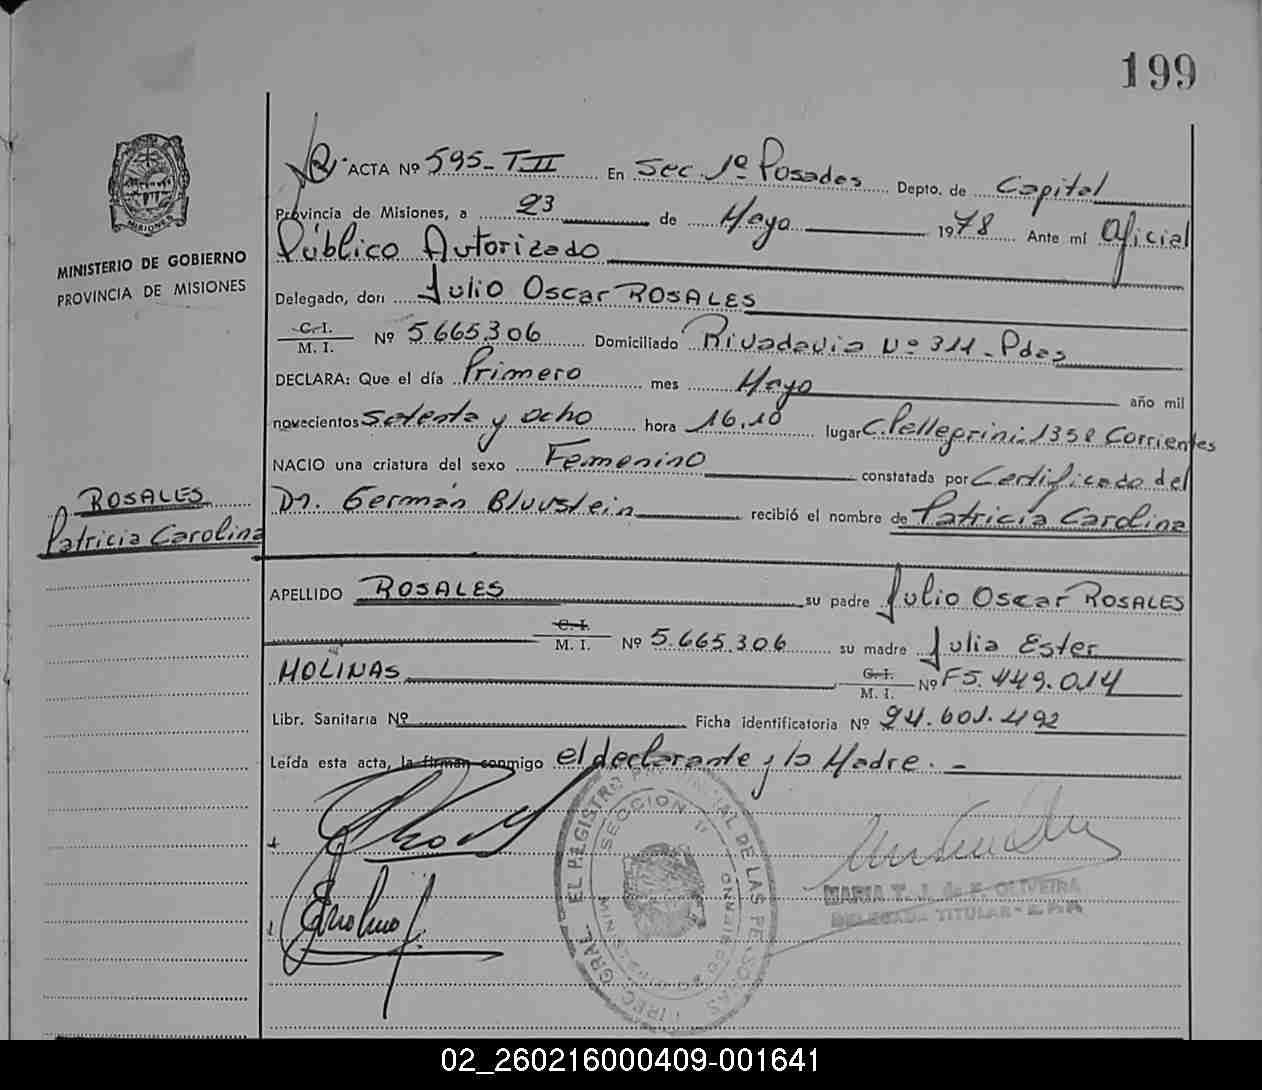 199
ACTA Nº 595-TII En Sec 1º Posadas Depto. de Capital
Provincia de Misiones, a 23 de Mayo 1978 Ante mi Oficial
Público Autorizado
MINISTERIO DE GOBIERNO
PROVINCIA DE MISIONES
Delegado, don Julio Oscar ROSALES
C. I.
M. I. Nº 5665306 Domiciliado Rivadavia Nº 311-Pdas
DECLARA: Que el día Primero mes Mayo año mil
novecientos setenta y ocho hora 16,10 lugar C. Pellegrini 1352 Corrientes
NACIO una criatura del sexo Femenino constatada por Certificado del
Dr. Germán Bluvstein recibió el nombre de Patricia Carolina
ROSALES
Patricia Carolina
APELLIDO ROSALES su padre Julio Oscar ROSALES
C. I.
M. I. Nº 5.665.306 su madre Julia Ester
MOLINAS C. I.
M. I. Nº F5.449.014
Libr. Sanitaria Nº Ficha identificatoria Nº 24.601.492
Leída esta acta, la firman conmigo el declarante y la Madre.-
SECCION
MARIA T. J. de F. OLIVEIRA
DELEGADA TITULAR-
MISIONES
02_260216000409-001641